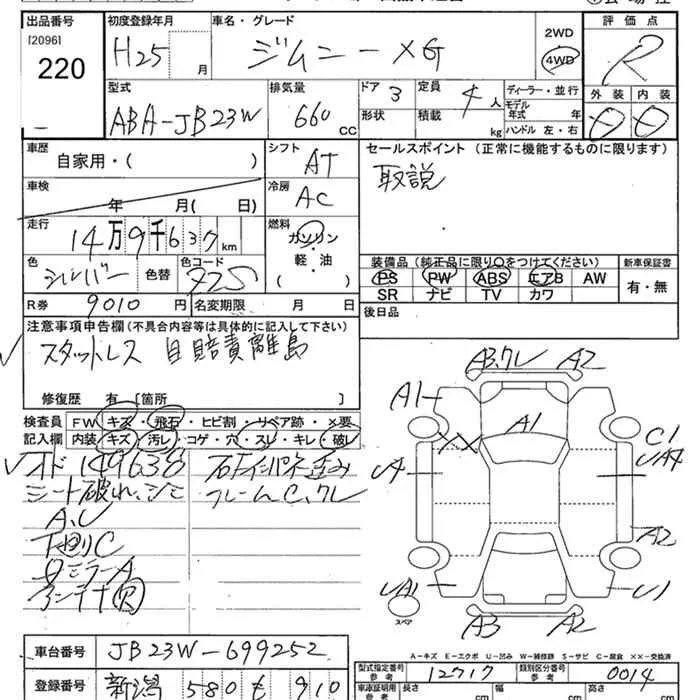 出品番号 初度登録年月 車名・グレード 評価点
[2096] H25 月 ジムニー XG 2WD R
220 4WD
型式 排気量 ドア 定員 ディーラー・並行 外装 内装
ABA-JB23W 660 CC 3 4人 モデル年式 年
形状 積載 kg ハンドル 左・右
車歴 シフト セールスポイント(正常に機能するものに限ります)
自家用・( ) AT 取説
車検 冷房
年 月( 日) AC
走行 燃料
14万9千637km ガソリン・軽油
色 色コード ( ) 装備品(純正品に限り〇をつけてください) 新車保証書
シルバー 色替 Z2S PS PW ABS エアB AW 有・無
R券 9010円 名変期限 月 日 SR ナビ TV カワ
注意事項申告欄(不具合内容等は具体的に記入して下さい) 後日品
スタットレス 自賠責離島
修復歴 有 [箇所 ]
検査員 FW キズ・飛石・ヒビ割・リペア跡・×要
記入欄 内装 キズ・汚レ・コゲ・穴・スレ・キレ・破レ
オド 149638
シート破れ、シミ フレームC、クレ
A、U
下回りC
ミラーA
アンテナ欠
A3,クレ A2
A1 A1
XX C1
U4 UA4
A2
UA1 U1
スペア A3 A2
A-キズ E-エクボ U-凹み W-補修跡 S-サビ C-腐食 ××-交換済
車台番号 JB23W-699252 型式指定番号 参考 12717 類別区分番号 参考 0014
登録番号 新潟 580 も 910 車庫証明用 参考 長さ cm 幅 cm 高さ cm